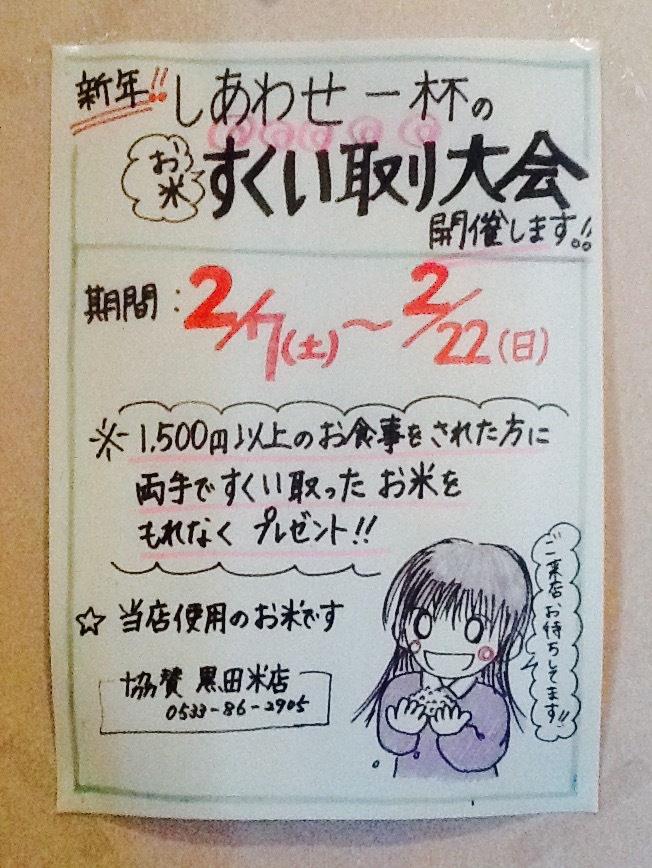 新年!!しあわせ一杯の
お米
すくい取り大会
開催します!!
期間:2/7(土)〜2/22(日)
※1,500円以上のお食事をされた方に
両手ですくい取ったお米を
もれなくプレゼント!!
☆当店使用のお米です
協賛 黒田米店
0533-86-2905
ご来店お待ちしてます!!